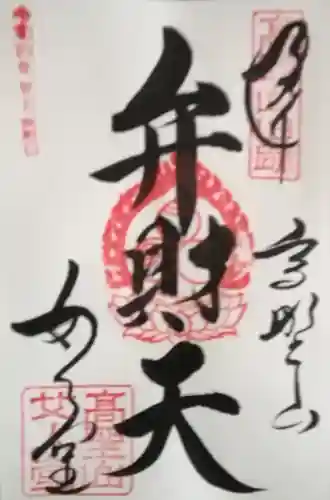 奉拝
高野山
弁財天
女人堂
高野山
女人堂